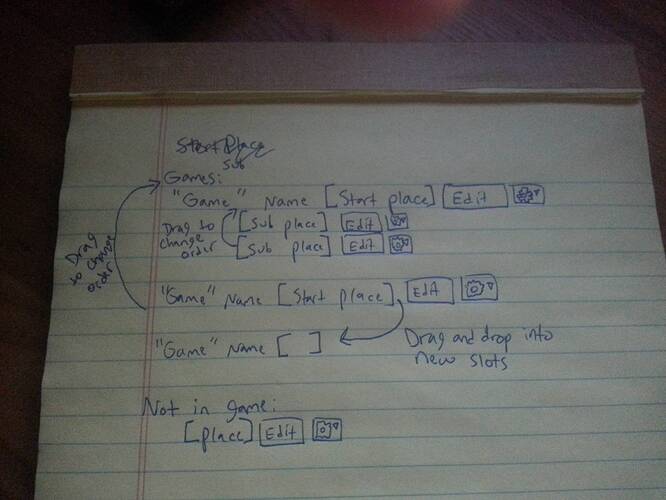 Start Place
Sub
Games:
"Game" Name [Start place] Edit
Drag to change order
[Sub place] Edit
[Sub place] Edit
Drag to change order
"Game" Name [Start place] Edit
"Game" Name [ ]
Drag and drop into
new slots
Not in game:
[place] Edit